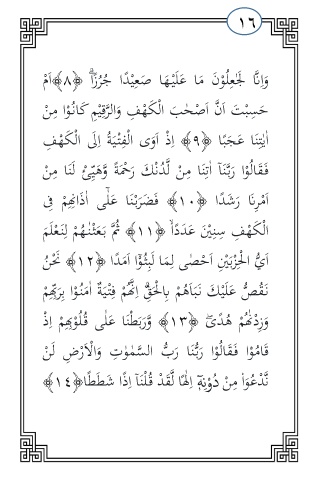 ١٦
وَاِنَّا لَجٰعِلُوْنَ مَا عَلَيْهَا صَعِيْدًا جُرُزًاۗ ﴿٨﴾ اَمْ
حَسِبْتَ اَنَّ اَصْحٰبَ الْكَهْفِ وَالرَّقِيْمِ كَانُوْا مِنْ
اٰيٰتِنَا عَجَبًا ﴿٩﴾ اِذْ اَوَى الْفِتْيَةُ اِلَى الْكَهْفِ
فَقَالُوْا رَبَّنَآ اٰتِنَا مِنْ لَّدُنْكَ رَحْمَةً وَّهَيِّئْ لَنَا مِنْ
اَمْرِنَا رَشَدًا ﴿١٠﴾ فَضَرَبْنَا عَلٰٓى اٰذَانِهِمْ فِى
الْكَهْفِ سِنِيْنَ عَدَدًاۙ ﴿١١﴾ ثُمَّ بَعَثْنٰهُمْ لِنَعْلَمَ
اَيُّ الْحِزْبَيْنِ اَحْصٰى لِمَا لَبِثُوْٓا اَمَدًا ﴿١٢﴾ نَحْنُ
نَقُصُّ عَلَيْكَ نَبَاَهُمْ بِالْحَقِّۗ اِنَّهُمْ فِتْيَةٌ اٰمَنُوْا بِرَبِّهِمْ
وَزِدْنٰهُمْ هُدًىۖ ﴿١٣﴾ وَّرَبَطْنَا عَلٰى قُلُوْبِهِمْ اِذْ
قَامُوْا فَقَالُوْا رَبُّنَا رَبُّ السَّمٰوٰتِ وَالْاَرْضِ لَنْ
نَّدْعُوَا۟ مِنْ دُوْنِهٖٓ اِلٰهًا لَّقَدْ قُلْنَآ اِذًا شَطَطًا ﴿١٤﴾